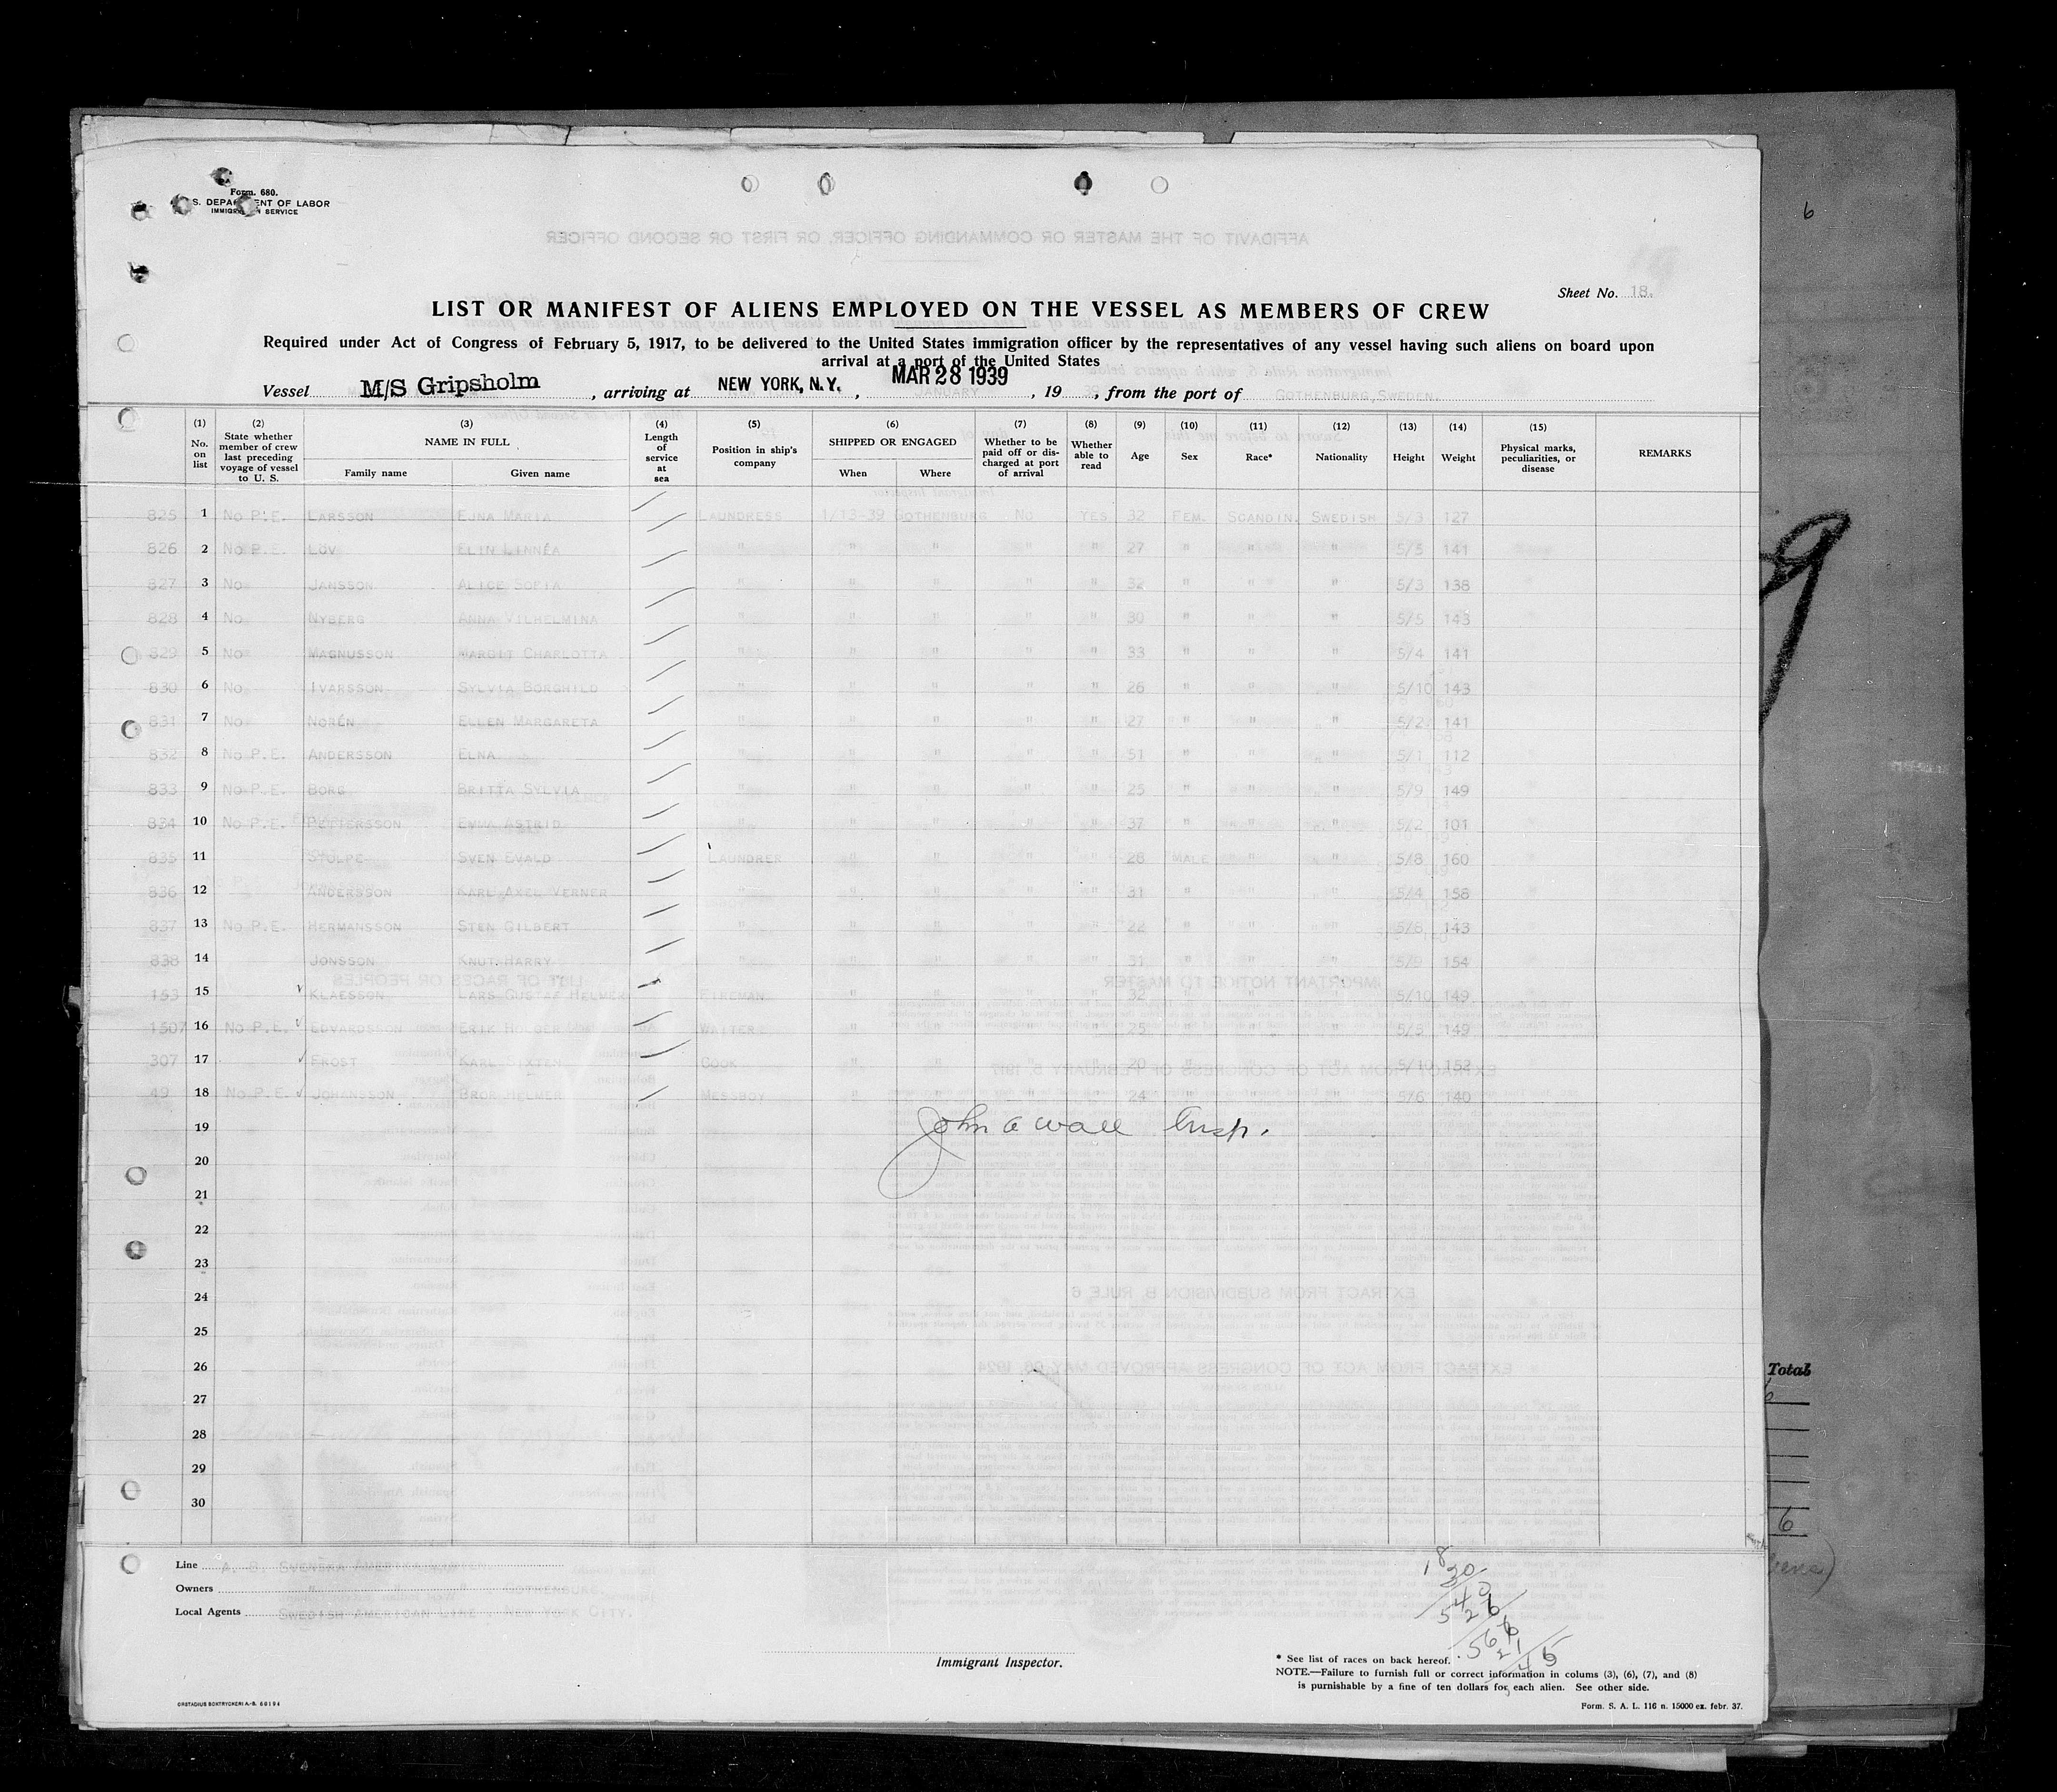 Form. 680.
S. DEPARTMENT OF LABOR
IMMIGRATION SERVICE
Sheet No. 18.
LIST OR MANIFEST OF ALIENS EMPLOYED ON THE VESSEL AS MEMBERS OF CREW
Required under Act of Congress of February 5, 1917, to be delivered to the United States immigration officer by the representatives of any vessel having such aliens on board upon
arrival at a port of the United States
Vessel M/S Gripsholm, arriving at NEW YORK, N.Y., MAR 28 1939 JANUARY, 19 39, from the port of GOTHENBURG, SWEDEN.
(1) No. on list (2) State whether member of crew last preceding voyage of vessel to U. S. (3) NAME IN FULL Family name Given name (4) Length of service at sea (5) Position in ship's company (6) SHIPPED OR ENGAGED When Where (7) Whether to be paid off or discharged at port of arrival (8) Whether able to read (9) Age (10) Sex (11) Race* (12) Nationality (13) Height (14) Weight (15) Physical marks, peculiarities, or disease REMARKS
825 1 No P.E. LARSSON EJNA MARIA LAUNDRESS 1/13-39 GOTHENBURG No YES 32 FEM. SCANDIN. SWEDISH 5/3 127
826 2 No P.E. LÖV ELIN LINNÉA " " " " " 27 " " " 5/5 141
827 3 No JANSSON ALICE SOFIA " " " " " 32 " " " 5/3 138
828 4 No NYBERG ANNA VILHELMINA " " " " " 30 " " " 5/5 143
829 5 No MAGNUSSON MARGIT CHARLOTTA " " " " " 33 " " " 5/4 141
830 6 No IVARSSON SYLVIA BORGHILD " " " " " 26 " " " 5/10 143
831 7 No NORÉN ELLEN MARGARETA " " " " " 27 " " " 5/2 141
832 8 No P.E. ANDERSSON ELNA " " " " " 51 " " " 5/1 112
833 9 No P.E. BORG BRITTA SYLVIA " " " " " 25 " " " 5/9 149
834 10 No P.E. PETTERSSON EMMA ASTRID " " " " " 37 " " " 5/2 101
835 11 STOLPE SVEN EVALD LAUNDRER " " " " 28 MALE " " 5/8 160
836 12 ANDERSSON KARL AXEL VERNER " " " " " 31 " " " 5/4 158
837 13 No P.E. HERMANSSON STEN GILBERT " " " " " 22 " " " 5/6 143
838 14 JONSSON KNUT HARRY " " " " " 31 " " " 5/9 154
153 15 KLAESSON LARS GUSTAF HELMER FIREMAN " " " " 32 " " " 5/10 149
1507 16 No P.E. EDVARDSSON ERIK HOLGER WAITER " " " " 25 " " " 5/5 149
307 17 FROST KARL SIXTEN COOK " " " " 20 " " " 5/10 152
49 18 No P.E. JOHANSSON BROR HELMER MESSBOY " " " " 24 " " " 5/6 140
19 John A Wall Insp.
20
21
22
23
24
25
26
27
28
29
30
Line A. B. SVENSKA AMERIKA LINIEN
Owners " " " GOTHENBURG.
Local Agents SWEDISH AMERICAN LINE NEW YORK CITY.
Immigrant Inspector.
* See list of races on back hereof.
NOTE.—Failure to furnish full or correct information in colums (3), (6), (7), and (8)
is purnishable by a fine of ten dollars for each alien. See other side.
ORSTADIUS BOKTRYCKERI A.-B. 60194
Form. S. A. L. 116 n. 15000 ex. febr. 37.
6
9
Total
6